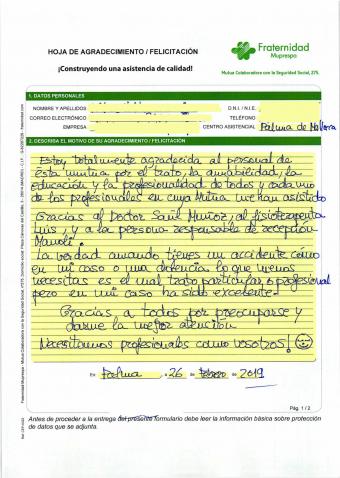 HOJA DE AGRADECIMIENTO / FELICITACIÓN
¡Construyendo una asistencia de calidad!
Fraternidad
Muprespa
Mutua Colaboradora con la Seguridad Social, 275.
1. DATOS PERSONALES
NOMBRE Y APELLIDOS
D.N.I. / N.I.E.
CORREO ELECTRÓNICO
TELÉFONO
EMPRESA
CENTRO ASISTENCIAL Palma de Mallorca
2. DESCRIBA EL MOTIVO DE SU AGRADECIMIENTO / FELICITACIÓN
Estoy totalmente agradecida al personal de
esta mutua por el trato, la amabilidad, la
educación y la profesionalidad de todos y cada uno
de los profesionales en cuya Mutua me han asistido
Gracias al Doctor Saúl Muñoz, al fisioterapeuta
Luis, y a la persona responsable de recepción
Manoli.
La verdad cuando tienes un accidente como
en mi caso o una dolencia lo que menos
necesitas es el mal trato particular o profesional
pero en mi caso ha sido excelente.
Gracias a todos por preocuparse y
darme la mejor atención
¡Necesitamos profesionales como vosotros!
En Palma a 26 de Febrero de 2019
Pág. 1 / 2
Antes de proceder a la entrega del presente formulario debe leer la información básica sobre protección
de datos que se adjunta.